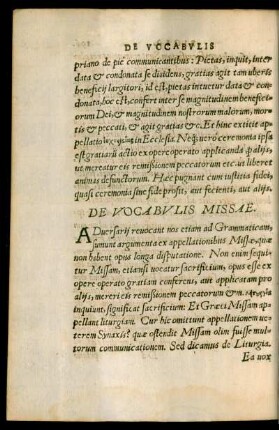 DE VOCABVLIS
priano de piè communicantibus: Pietas, inquit, inter
data & condonata se diuidens, gratias agit tam uberis
beneficij largitori, id est, pietas intuetur data & con-
donata, hoc est, confert inter se magnitudinem benefici-
orum Dei, & magnitudinem nostrorum malorum, mor-
tis & peccati, & agit gratias &c. Et hinc exticit ap-
pellatio in Ecclesia. Nequè uerò ceremonia ipsa
est gratiarū actio ex opere operato applicanda pro alijs,
ut mereatur eis remissionem peccatorum etc. ut liberet
animas defunctorum. Hæc pugnant cum iustitia fidei,
quasi ceremonia sine fide prosit, aut facienti, aut alijs.
DE VOCABVLIS MISSAE.
ADuersarij reuocant nos etiam ad Grammaticam,
sumunt argumenta ex appellationibus Missæ, quæ
non habent opus longa disputatione. Non enim sequi-
tur Missam, etiamsi uocatur sacrificium, opus esse ex
opere operato gratiam conferens, aut applicatum pro
alijs, mereri eis remissionem peccatorum &c.
inquiunt, significat sacrificium: Et Græci Missam ap-
pellant liturgiam. Cur hic omittunt appellationem ue-
terem Synaxis? quæ ostendit Missam olim fuisse mul-
torum communicationem. Sed dicamus de Liturgia.
Ea uox